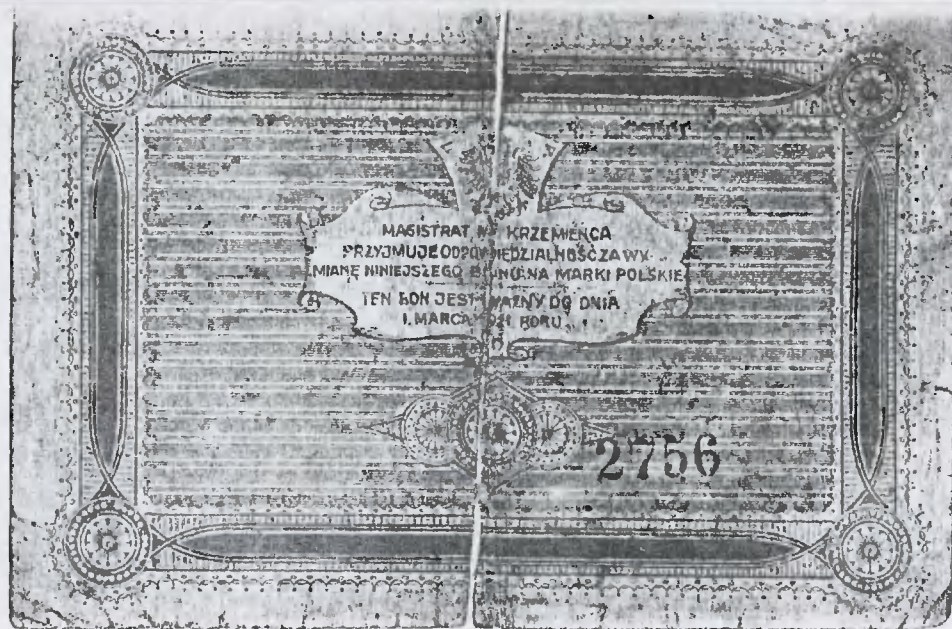 MAGISTRAT KRZEMIEŃCA
PRZYJMUJE ODPOWIEDZIALNOŚĆ ZA WY-
MIANĘ NINIEJSZEGO NA MARKI POLSKIE
TEN BON JEST WAŻNY DO DNIA
1. MARCA ROKU
2756